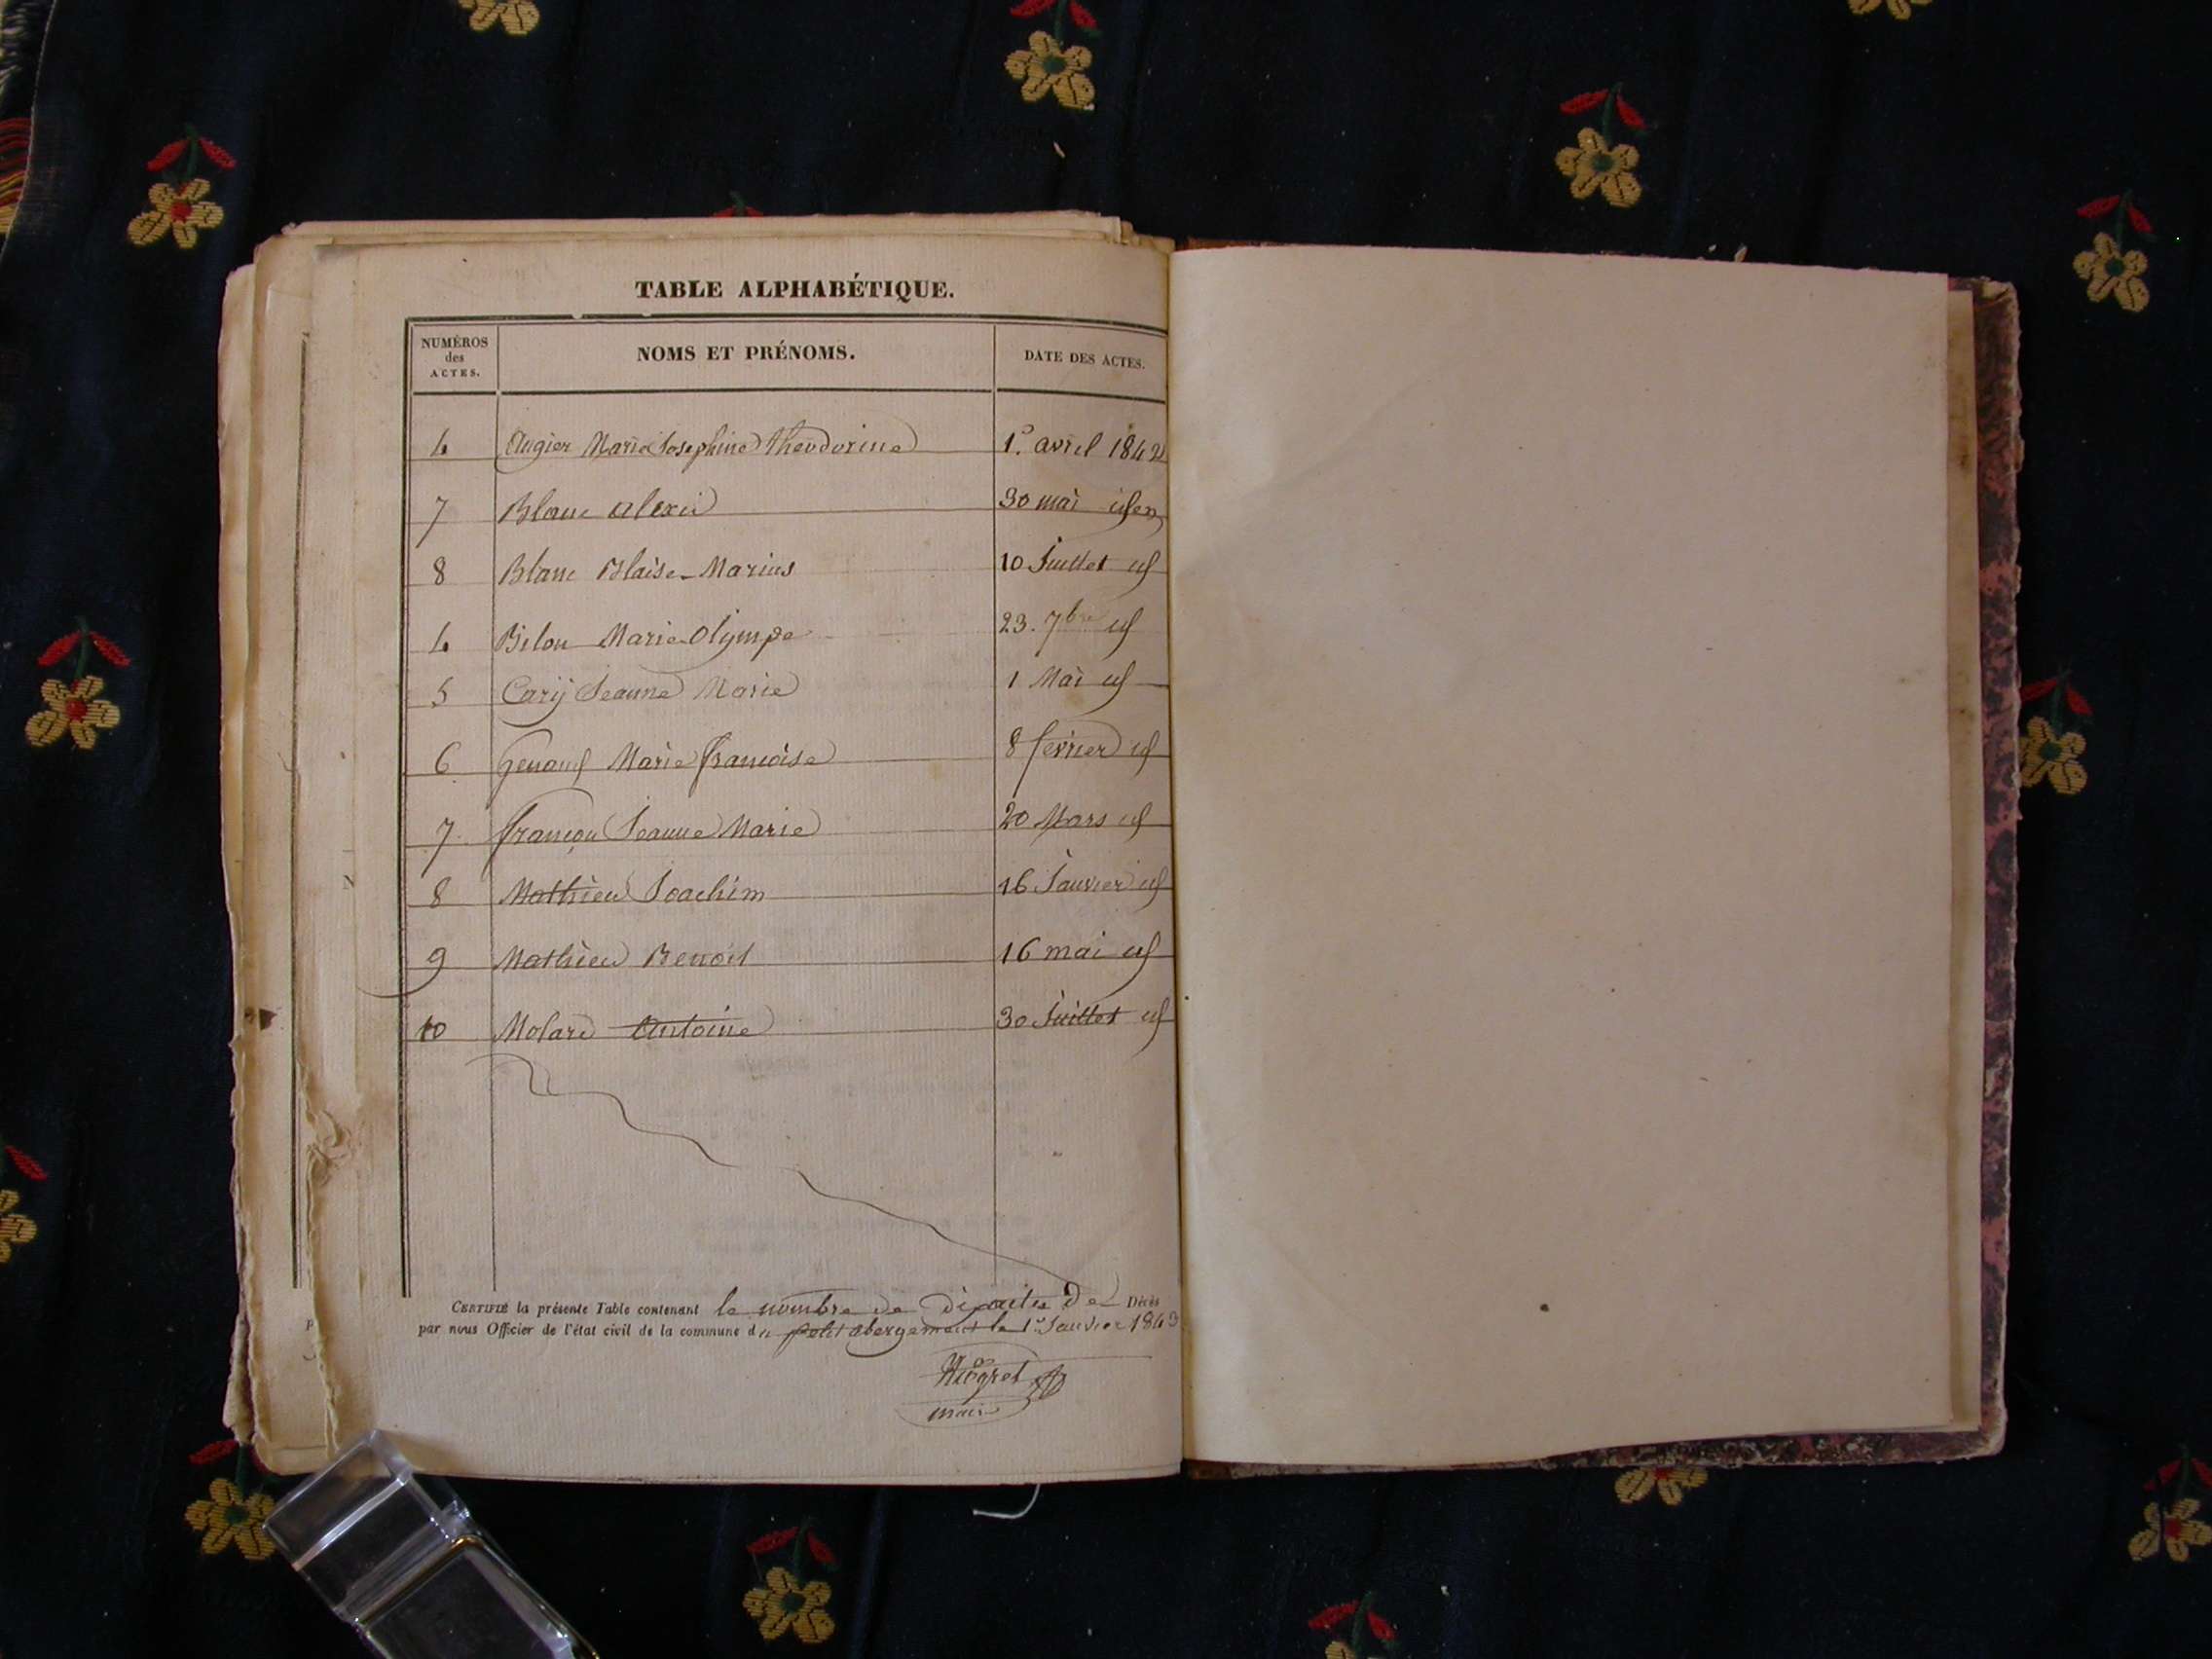 TABLE ALPHABÉTIQUE.
NUMÉROS des ACTES. NOMS ET PRÉNOMS. DATE DES ACTES.
4 Augier Marie Josephine théodorine 1.º avril 1842
7 Blanc alexis 30 mai
8 Blanc Blaise-Marius 10 Juillet
4 Bilon Marie Olympe 23. 7bre
5 Cary Jeanne Marie 1 Mai
6 Marie françoise 8 février
7 françon Jeanne Marie 20 Mars
8 Mathieu Joachim 16 Janvier
9 Mathieu Benoit 16 mai
10 Molard Antoine 30 Juillet
CERTIFIÉ la présente Table contenant le nombre de dix actes de Décès
par nous Officier de l'état civil de la commune du petit abergement le 1er Janvier 1843
maire